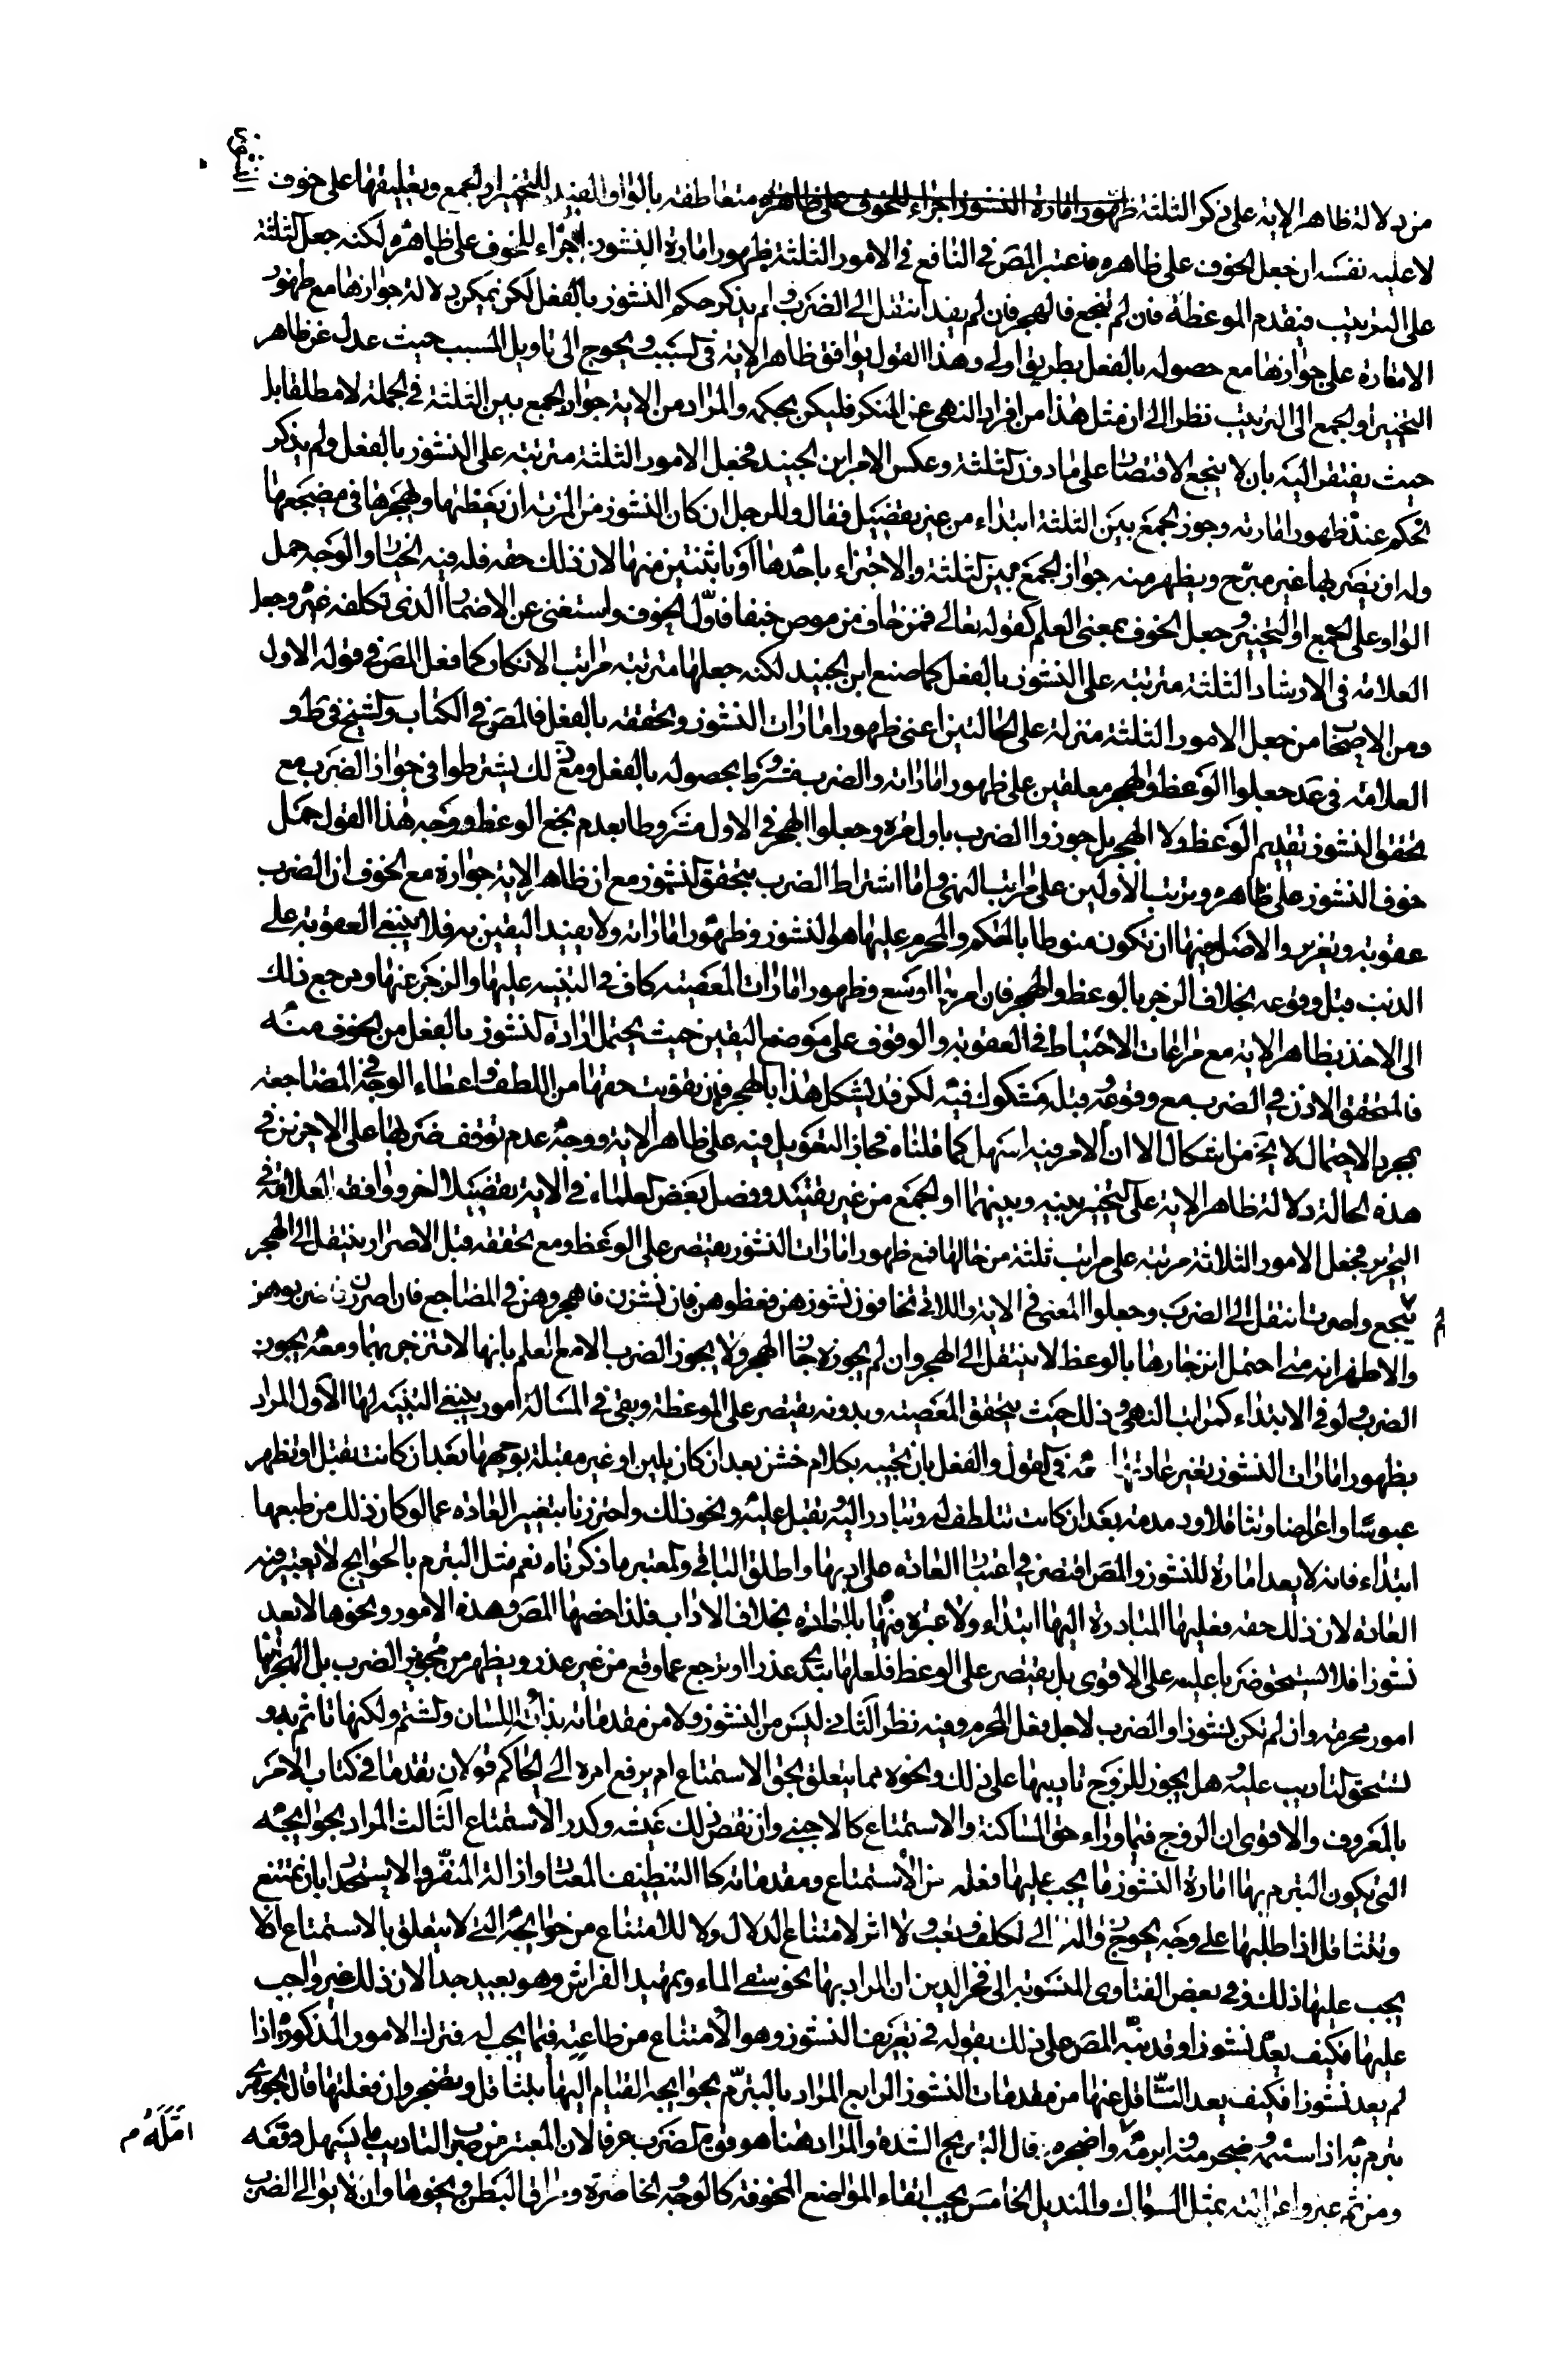 من دلالة ظاهر الاية على ذكر الثلثة ظهور امارة النشوز اجراء للخوف على ظاهره متعاطفة بالواو المفيد للتخيير او الجمع وتعليقها على خوف
لاعليه نفسه ان جعل الخوف على ظاهره فاعتبر المص في النافع في الامور الثلثة ظهور امارة النشوز اجراء للخوف على ظاهره لكنه جعل الثلثة
على الترتيب فيقدم الموعظة فان لم تنجع فالهجر فان لم يفد انتقل الى الضرب ولم يذكر حكم النشوز بالفعل لكن يمكن دلالة جوازها مع ظهور
الامارة على جوازها مع حصوله بالفعل بطريق اولى وهذا القول يوافق ظاهر الاية في السبب ويحوج الى تاويل المسبب حيث عدل عن ظاهر
التخيير او الجمع الى الترتيب نظرا الى ان مثل هذا من افراد النهي عن المنكر فليكن بحكمه والمراد من الاية جواز الجمع بين الثلثة في الجملة لا مطلقا بل
حيث يفتقر اليه بان لا ينجع الاقتصار على ما دون الثلثة وعكس الامر ابن الجنيد فجعل الامور الثلثة مترتبة على النشوز بالفعل ولم يذكر
الحكم عند ظهور امارته وجوز الجمع بين الثلثة ابتداء من غير تفصيل فقال وللرجل ان كان النشوز من المرئة ان يعظها ويهجرها في مضجعها
وله ان يضربها غير مبرح ويظهر منه جواز الجمع بين الثلثة والاجتزاء باحدها او باثنتين منها لان ذلك حقه فله فيه الخيار والوجه حمل
الواو على الجمع او التخيير وجعل الخوف بمعنى العلم كقوله تعالى فمن خاف من موص جنفا فاول الخوف واستغنى عن الاضمار الذي تكلفه غيره وجعل
العلامة في الارشاد الثلثة مترتبة على النشوز بالفعل كما صنع ابن الجنيد لكنه جعلها مترتبة مراتب الانكار كما فعل المص في قوله الاول
ومن الاصحاب من جعل الامور الثلثة منزلة على الحالتين اعني ظهور امارات النشوز وتحققه بالفعل فالمص في الكتاب والشيخ في ط و
العلامة في عد جعلوا الوعظ والهجر معلقين على ظهور اماراته والضرب مشروط بحصوله بالفعل ومع ذلك لم يشترطوا في جواز الضرب مع
تحقق النشوز تقديم الوعظ ولا الهجر بل جوزوا الضرب باول مرة وجعلوا الهجر في الاول مشروطا بعدم نجع الوعظ ووجه هذا القول حمل
خوف النشوز على ظاهره وترتيب الاولين على مراتب النهي واما اشتراط الضرب بتحقق النشوز مع ان ظاهر الاية جوازه مع الخوف ان الضرب
عقوبة وتعزير والاصل فيها ان تكون منوطا بالمحكم والمحرم عليها هو النشوز وظهور اماراته ولا يفيد اليقين به فلا ينبغي العقوبة على
الذنب قبل وقوعه بخلاف الزجر بالوعظ والهجر فان امرهما اوسع وظهور امارات المعصية كاف في التنبيه عليها والزجر عنها ومرجع ذلك
الى الاخذ بظاهر الاية مع مراعات الاحتياط في العقوبة والوقوف على موضع اليقين حيث يحتمل ارادة النشوز بالفعل من الخوف منه
فالمتحقق الاذن في الضرب مع وقوعه وقبله مشكوك فيه لكن قد يشكل هذا بالهجر فان تفويت حقها من اللطف واعطاء الوجه في المضاجعة
بمجرد الاحتمال لا يخ من اشكال الا ان الامر فيه اسهل كما قلناه فجاز التعويل فيه على ظاهر الاية ووجه عدم توقف ضربها على الاخرين في
هذه الحالة دلالة ظاهر الاية على التخيير بينه وبينهما او الجمع من غير تقييد وفصل بعض العلماء في الاية تفصيلا اخر ووافقه العلامة في
التحرير فجعل الامور الثلاثة مرتبة على مراتب ثلثة من حالها فمع ظهور امارات النشوز يقتصر على الوعظ ومع تحققه قبل الاصرار ينتقل الى الهجر
لم ينجع واصرت انتقل الى الضرب وجعلوا المعنى في الاية واللاتي تخافون نشوزهن فعظوهن فان نشزن فاهجروهن في المضاجع فان اصررن فاضربوهن
والاظهر انه متى احتمل انزجارها بالوعظ لا ينتقل الى الهجر وان لم يجوزه جاز الهجر ولا يجوز الضرب الا مع العلم بانها لا تنزجر بهما ومعه يجوز
الضرب ولو في الابتداء كمراتب النهي وذلك حيث يتحقق المعصية وبدونه يقتصر على الموعظة وبقي في المسالة امور ينبغي التنبيه لها الاول المراد
بظهور امارات النشوز تغير عادتها معه في القول والفعل بان تجيبه بكلام خشن بعد ان كان بلين او غير مقبلة بوجهها بعد ان كانت تقبل او تظهر
عبوسا واعراضا وتثاقلا ودمدمة بعد ان كانت تتلطف له وتبادر اليه وتقبل عليه ونحو ذلك واحترزنا بتغيير العادة عما لو كان ذلك من طبعها
ابتداء فانه لا يعد امارة للنشوز والمص اقتصر في اعتبار العادة على ادبها واطلق الباقي والمعتبر ما ذكرناه نعم مثل التبرم بالحوايج لا يعتبر فيه
العادة لان ذلك حقه فعليها المبادرة اليها ابتداء ولا عبرة فيها بالعادة بخلاف الاداب فلذا خصها المص وهذه الامور ونحوها لا تعد
نشوزا فلا تستحق ضربا عليه على الاقوى بل يقتصر على الوعظ فلعلها تبدي عذرا او ترجع عما وقع من غير عذر ويظهر من تجويز الضرب بل الهجر انها
امور محرمة وان لم تكن نشوزا والضرب لاجل فعل المحرم وفيه نظر الثاني ليس من النشوز ولا من مقدماته بذاءة اللسان والشتم ولكنها تاثم به و
تستحق التاديب عليه وهل يجوز للزوج تاديبها على ذلك ونحوه مما يتعلق بحق الاستمتاع ام يرفع امره الى الحاكم قولان تقدما في كتاب الامر
بالمعروف والاقوى ان الزوج فيما وراء حق المساكنة والاستمتاع كالاجنبي وان نغص ذلك عيشه وكدر الاستمتاع الثالث المراد بحوائجه
التي يكون التبرم بها امارة النشوز ما يجب عليها فعله من الاستمتاع ومقدماته كالتنظيف المعتاد وازالة المنفر والاستحداد بان تمتنع
وتتثاقل اذا طلبها على وجه يحوج زواله الى تكلف وتعب ولا اثر لامتناع الدلال ولا للامتناع من حوائجه التي لا يتعلق بالاستمتاع اذ لا
يجب عليها ذلك وفي بعض الفتاوى المنسوبة الى فخر الدين ان المراد بها نحو سقي الماء وتمهيد الفراش وهو بعيد جدا لان ذلك غير واجب
عليها فكيف يعد نشوزا وقد نبه المص على ذلك بقوله في تعريف النشوز وهو الامتناع من طاعته فيما يجب له فترك الامور المذكورة اذا
لم يعد نشوزا فكيف يعد التثاقل عنها من مقدمات النشوز الرابع المراد بالتبرم بحوايجه القيام اليها بتثاقل وتضجر وان فعلتها قال الجوهري
تبرم به اذا سئمه وضجر منه وابرمه امله واضجره قال التبريح الشدة والمراد هنا هو فوق الضرب عرفا لان المعتبر من ضرب التاديب ما يسهل وقعه
ومن ثم عبروا عن الته بمثل السواك والمنديل الخامس يجب اتقاء المواضع المخوفة كالوجه والخاصرة ومراق البطن ونحوها وان لا يوالي الضرب